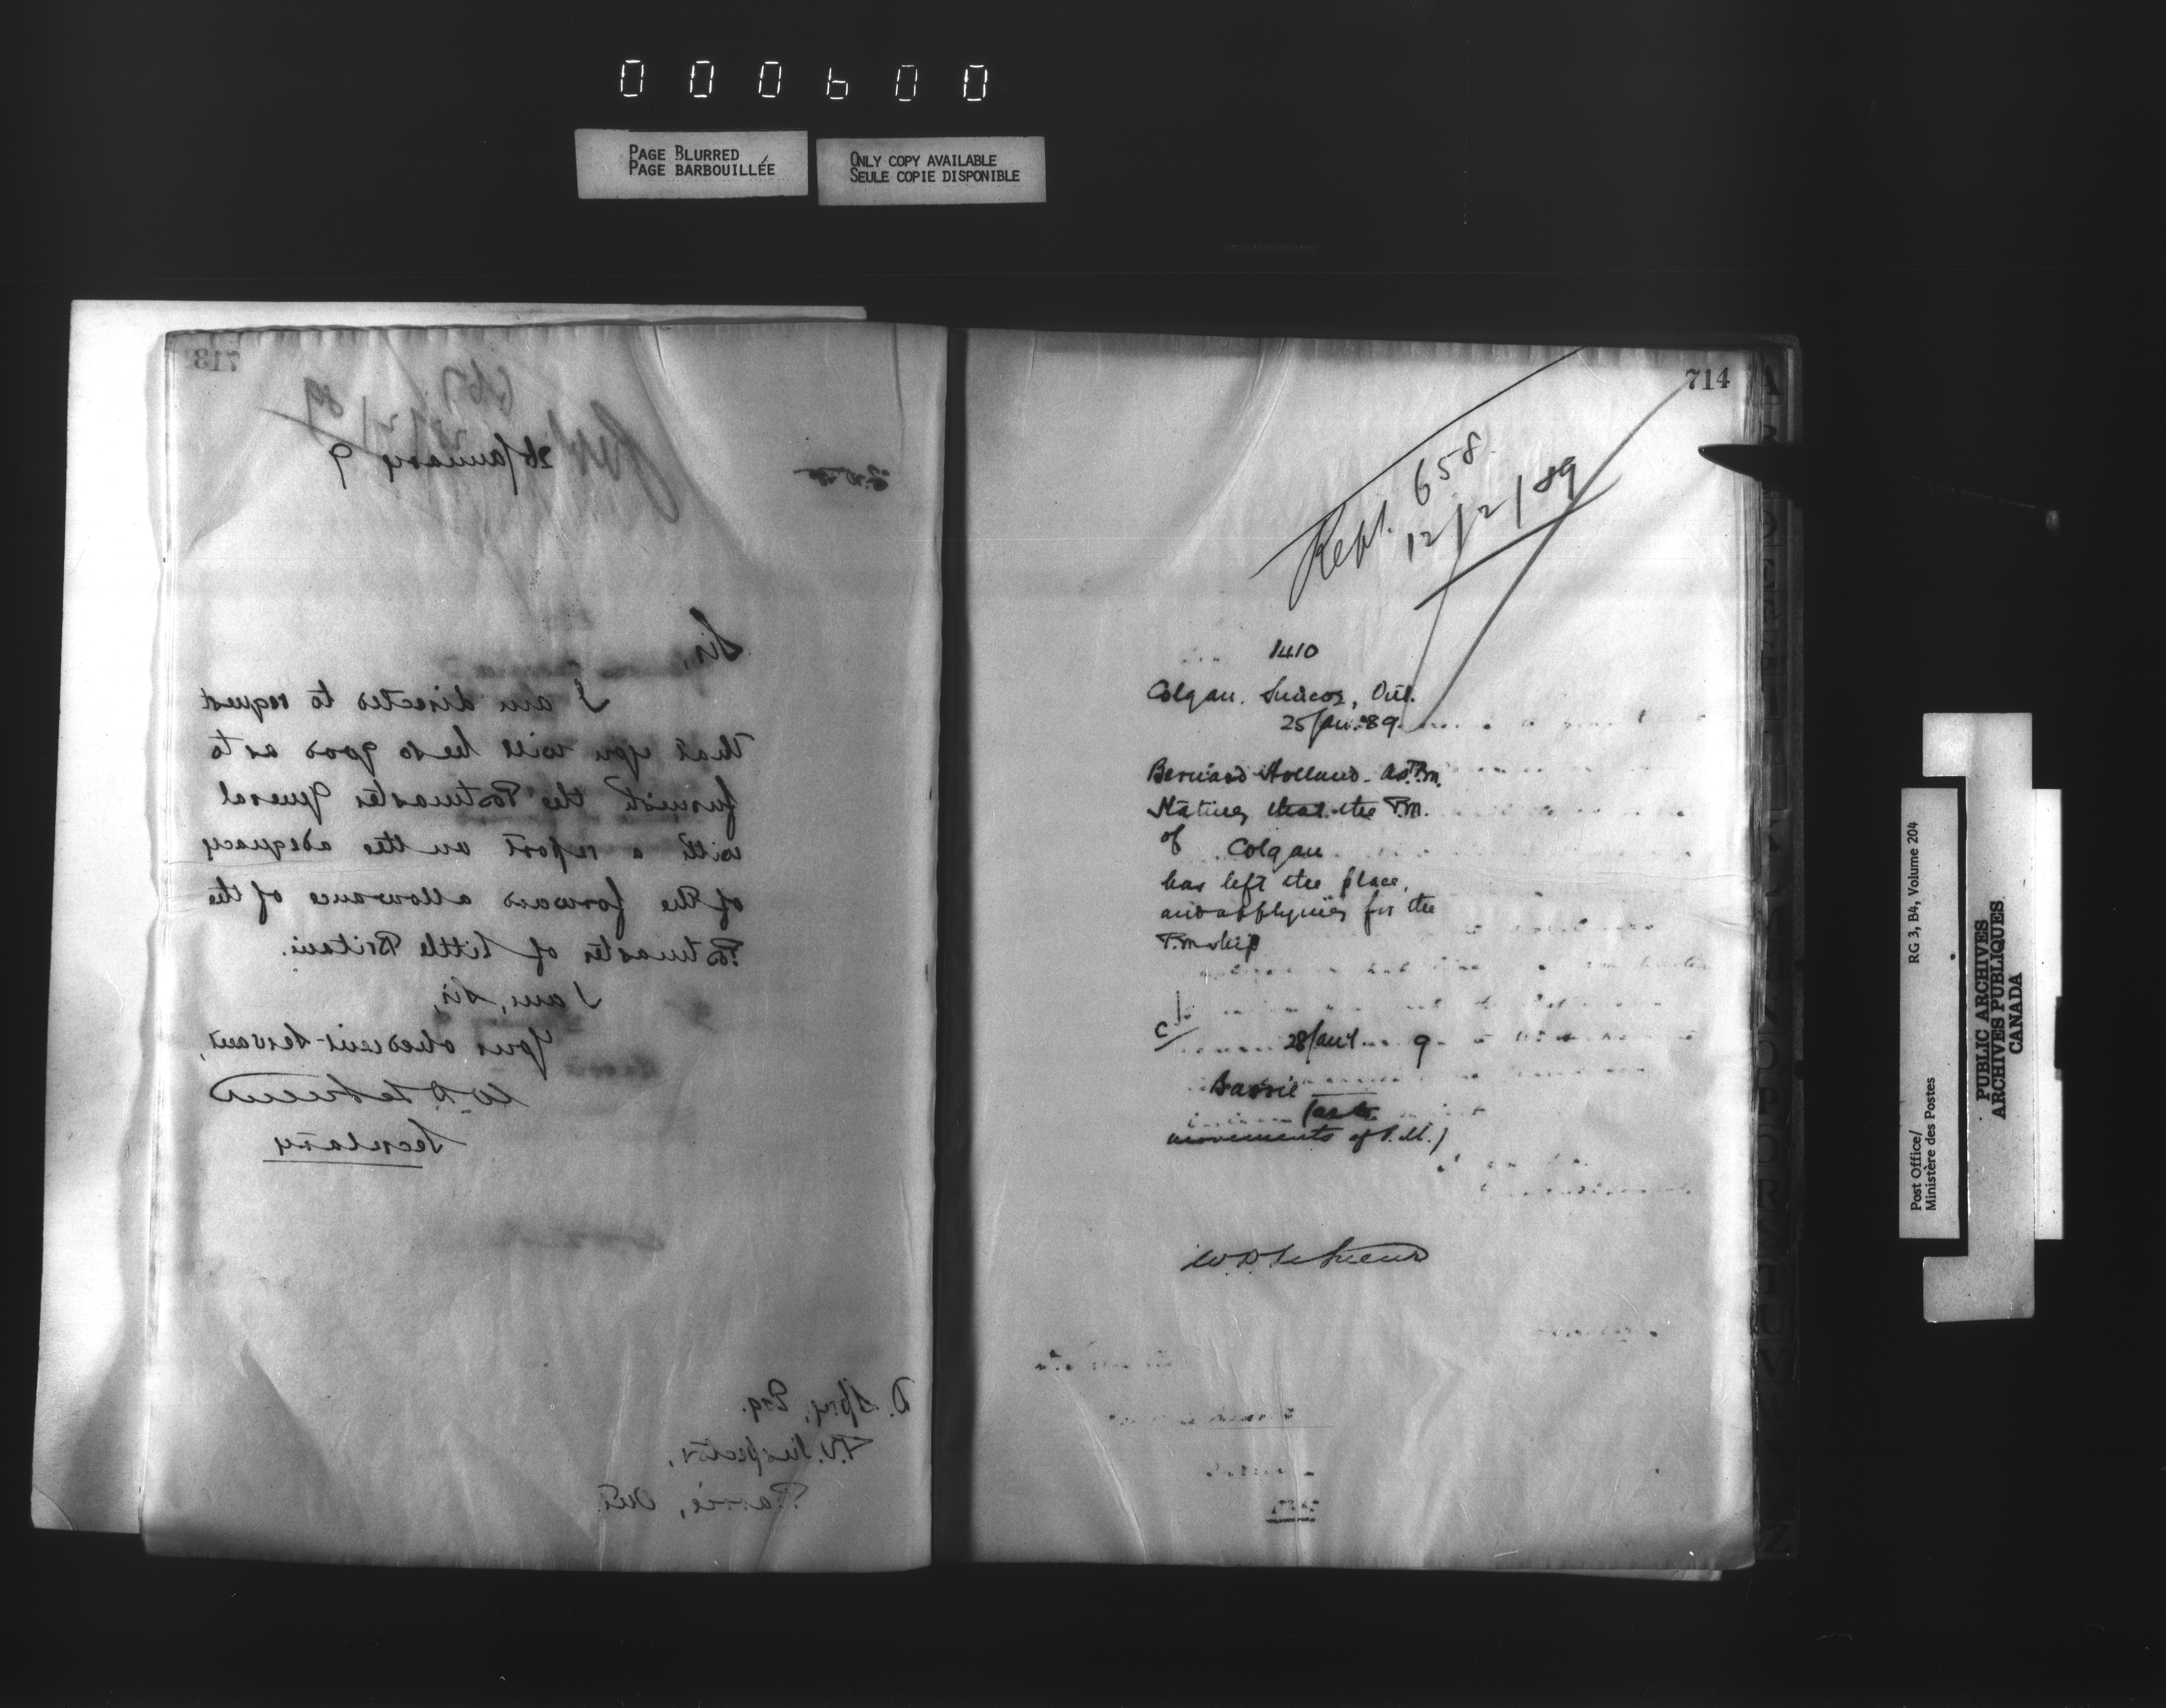 000600
PAGE BLURRED
PAGE BARBOUILLÉE
ONLY COPY AVAILABLE
SEULE COPIE DISPONIBLE
713
26 January 9
Sir,
I am directed to request
that you will be so good as to
furnish the Postmaster General
with a report on the adequacy
of the forward allowance of the
Postmaster of Little Britain.
I am, Sir,
Your obedient Servant,
W. D. LeSueur
Secretary
D. Spry, Esq.
P.O. Inspector,
Barrie, Ont.
714
Rept. 658
12/2/89
1410
Colgan. Simcoe, Ont.
25 Jan. 89.
Bernard Holland. P.m.
Stating that the P.M.
of Colgan
has left the place,
and applying for the
P.m ship
28 Jany 9
Barrie
(as to
movements of P.M.)
W. D. LeSueur
Post Office/
Ministère des Postes
RG 3, B4, Volume 204
PUBLIC ARCHIVES
ARCHIVES PUBLIQUES
CANADA